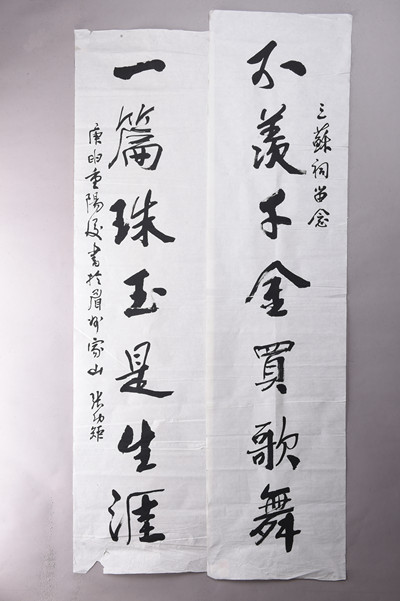 三蘇祠留念
不羨千金買歌舞
一篇珠玉是生涯
庚申重陽後書於眉州象山 張幼矩